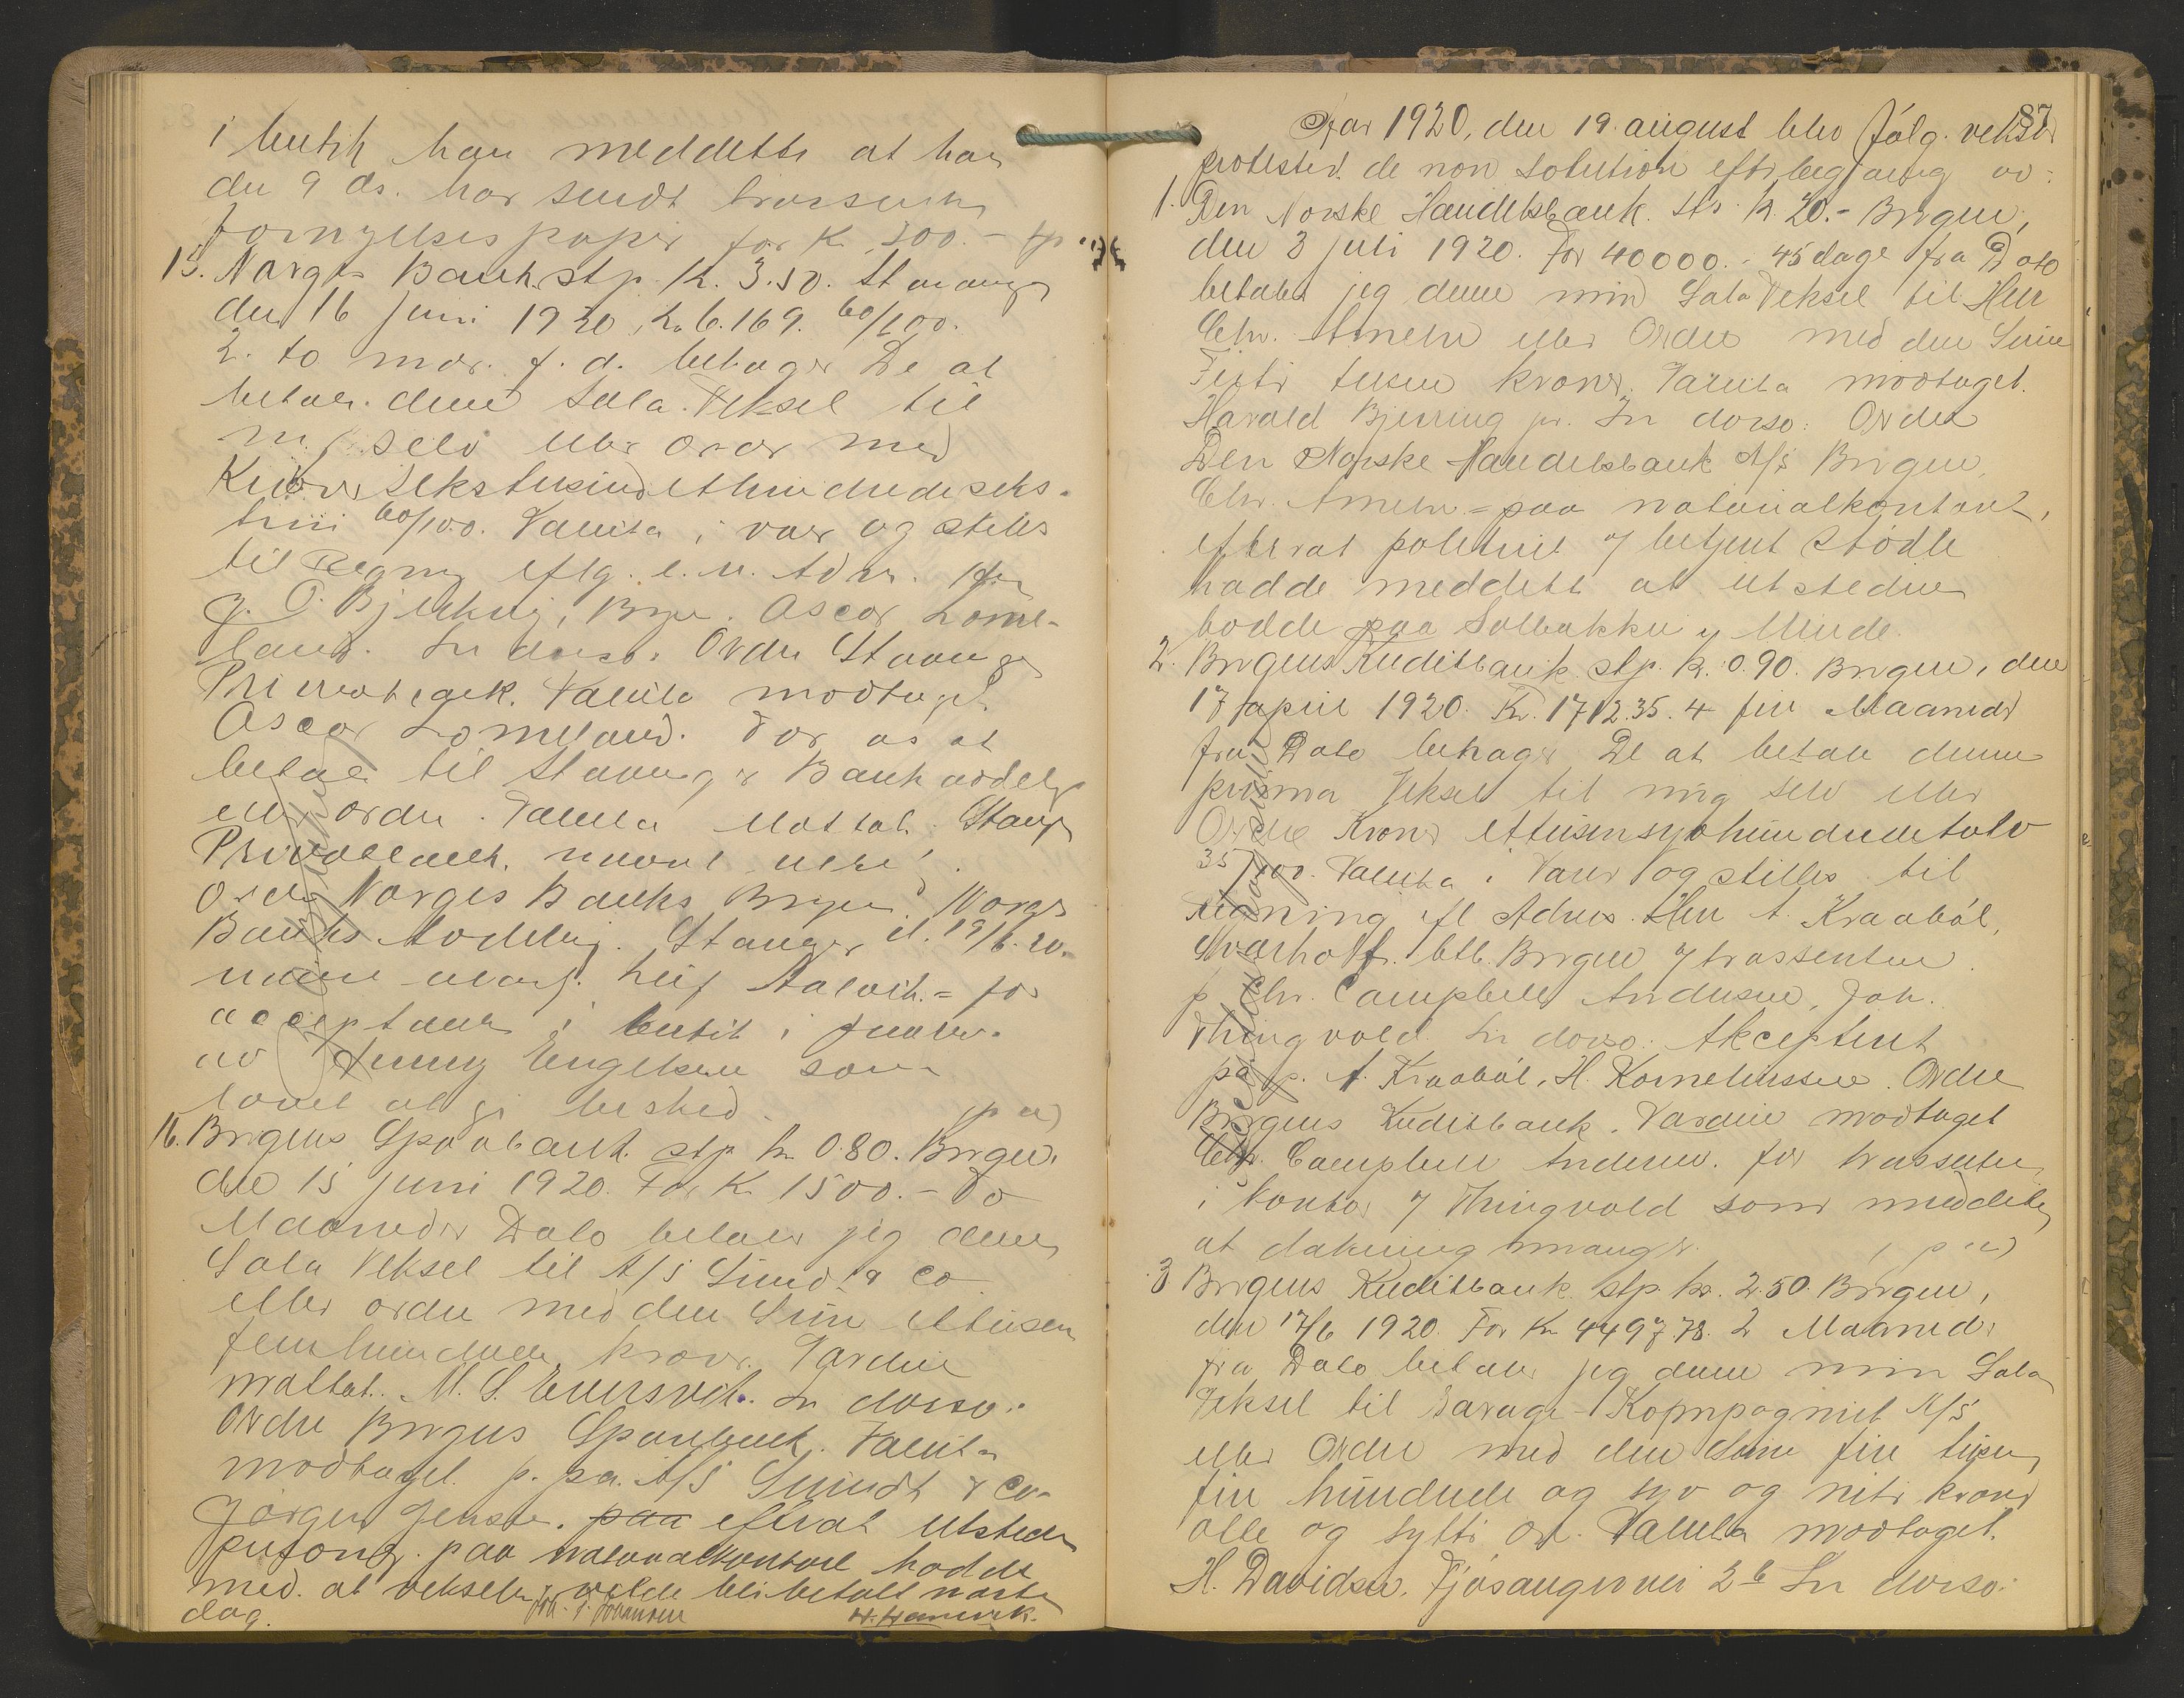 i butik han meddelte at han
den 9 ds. har sendt trassenten
fornyelsespapir for Kr. 300.-
15. Norges Bank. stp. K. 3.50. Stavanger
den 16 juni 1920, Kr. 6.169. 60/100.
2. to mdr. f. d. behager De at
betale denne Sola Veksel til
mig selv eller ordre med
Kroner Sekstusindethundredeseks-
60/100. Valuta i varer og stilles
til Regning eflg. Herr
J. O. Bjelkevig, Bergen. Ascor Lome-
land. In dorso. Ordre Stavanger
Privatbank. Valuta modtaget.
Ascor Lomeland. For os at
betale til Stavanger Bank avdeling
eller ordre. Valuta Mottat. Stavanger
Privatbank.
Ordre Norges Banks Bergen. Norges
Banks Avdeling. Stavanger d. 19/6. 20.
Leif Aalvik. = for
acceptanten i butik i
av Jenny Engelsen som
lovet at gi besked.
16. Bergens Sparebank. stp. kr. 0.80. Bergen,
den 15 juni 1920. For Kr. 1500.- To
Maaneder Dato betaler jeg denne
Sola Veksel til A/S Sundt & Co
eller ordre med den Sum Ettusen
femhundrede kroner. Værdien
mottat. M. S. In dorso.
Ordre Bergens Sparebank. Valuta
modtaget. p. pa. A/S Sundt & Co.
Jørgen Jensen. paa efterat utstederen
pr. telefon paa notarialkontoret hadde
med. at vekselen vilde bli betalt næste
dag. Joh. S. Johansen H.

87
Aar 1920, den 19. august blev følg. veksler
protestert de non solution efter begjæring av:
1. Den Norske Handelsbank. Stp. K. 20.- Bergen,
den 3 juli 1920. For 40000.- 45 dage fra Dato
betaler jeg denne min Sola Veksel til Herr
Chr. Ameln eller Ordre med den Sum
Firti tusen kroner. Valuta modtaget.
Harald Bjerring jr. In dorso: Ordre
Den Norske Handelsbank A/S Bergen,
Chr. Ameln = paa notarialkontoret,
efterat politiet v/ betjent Stødle
hadde meddelt at utstederen
bodde paa Solbakken v/ Minde.
2. Bergens Kreditbank stp. K. 0.90. Bergen, den
17 april 1920. Kr. 1712.35. 4 fire Maaneder
fra Dato behager De at betale denne
prima Veksel til mig selv eller
Ordre Kroner ettusensyvhundredetolv
35/100. Valuta i Varer og stilles til
regning efl Advis. Herr A. Kraabøl,
Sværholt. betb. Bergen v/ trassenten.
p. Chr. Campbell Andersen, Joh.
Thingvold. In dorso: Akceptert
p. p. A. Kraabøl, H. Kornelinssen. Ordre
Bergens Kreditbank. Værdien modtaget
Chr. Campbell Andersen. for trassenten
i kontor v/ Thingvold som meddelte
at dækning mangler.
3 Bergens Kreditbank. stp. kr. 2.50. Bergen,
den 17/6 1920. For Kr 4497.78. 2 Maaneder
fra Dato betaler jeg denne min Sola
Veksel til Garage-Kompagniet A/S
eller Ordre med den Sum fire tusen
fire hundrede og syv og nitti kroner
otte og sytti øre. Valuta modtaget.
H. Davidsen. Fjøsangerveien 2b In dorso: